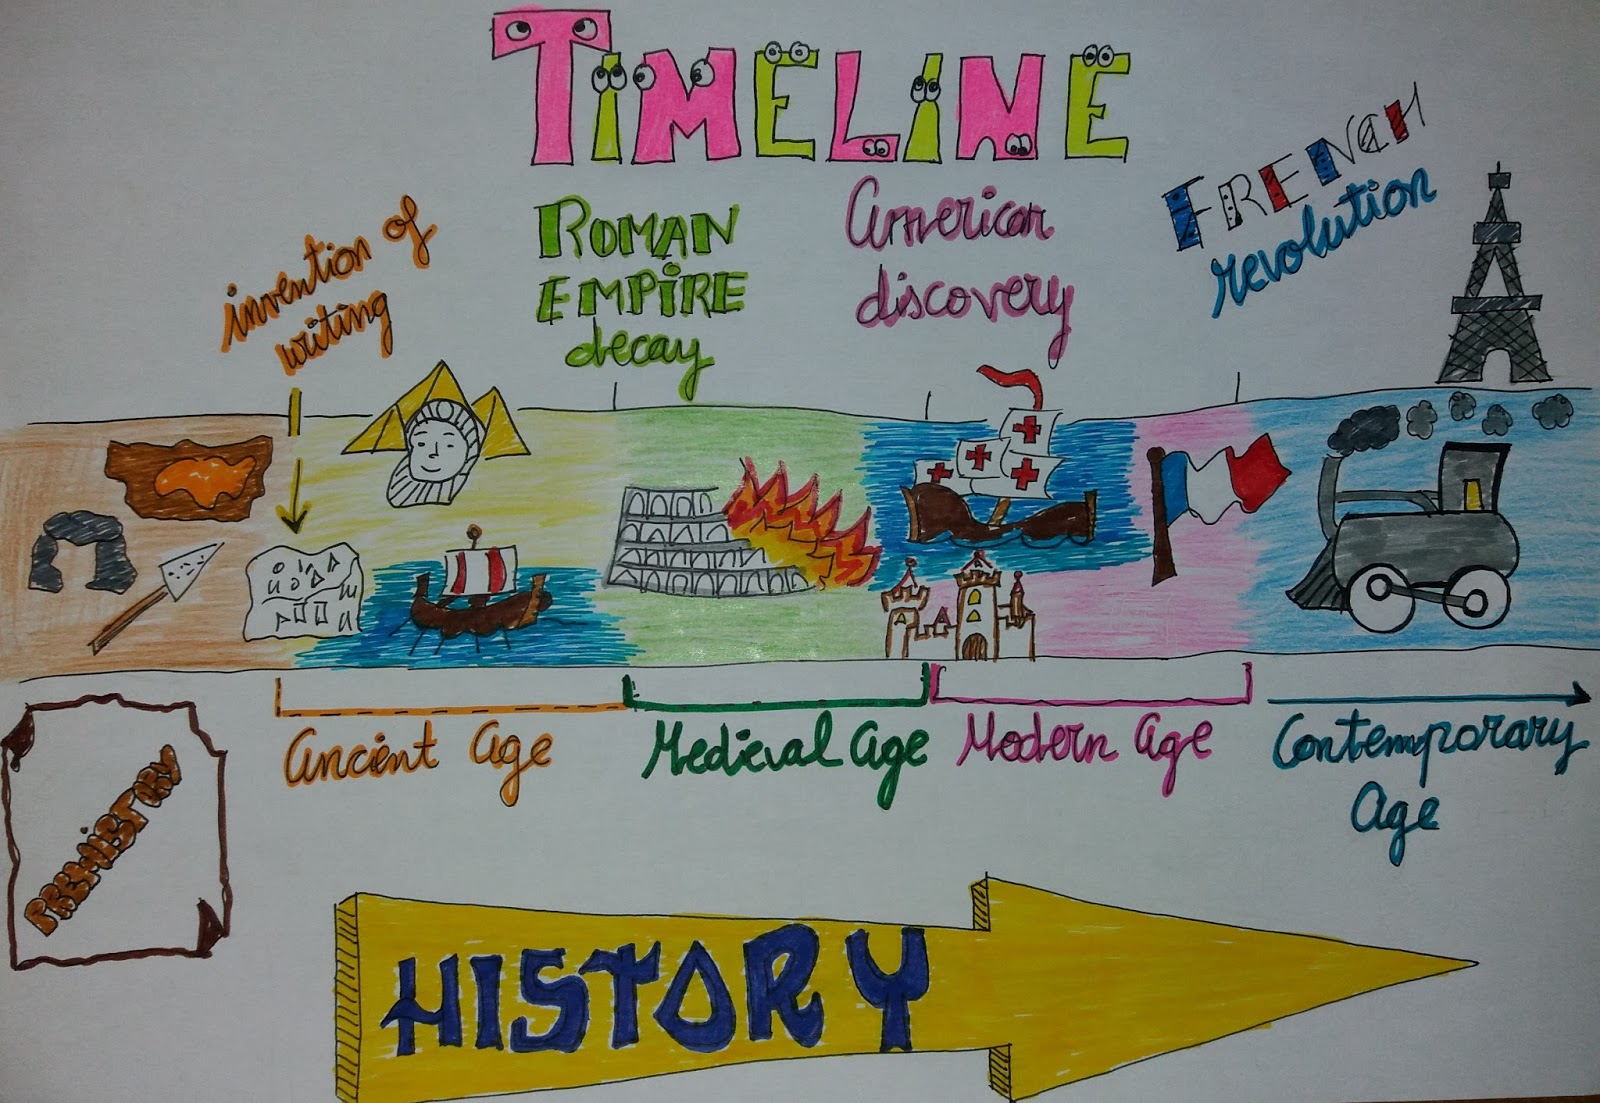 TIMELINE
invention of
writing
ROMAN
EMPIRE
decay
American
discovery
FRENCH
revolution
Ancient Age
Medieval Age
Modern Age
Contemporary
Age
PREHISTORY
HISTORY